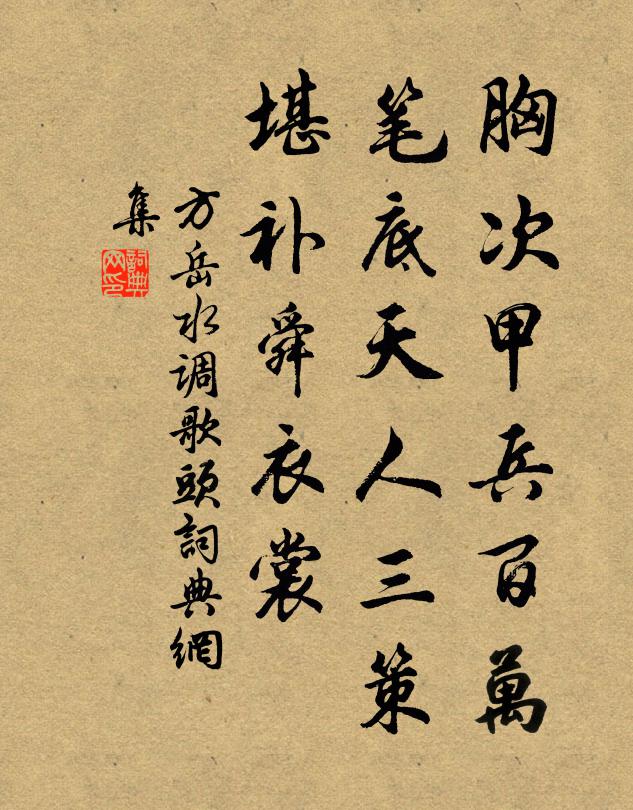 胸次甲兵百萬
笔底天人三策
堪补舜衣裳
方岳水调歌頭詞典網
集
詞典网印